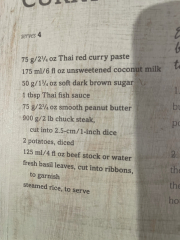 serves 4
75 g/2¾ oz Thai red curry paste
175 ml/6 fl oz unsweetened coconut milk
50 g/1¾ oz soft dark brown sugar
1 tbsp Thai fish sauce
75 g/2¾ oz smooth peanut butter
900 g/2 lb chuck steak,
cut into 2.5-cm/1-inch dice
2 potatoes, diced
125 ml/4 fl oz beef stock or water
fresh basil leaves, cut into ribbons,
to garnish
steamed rice, to serve